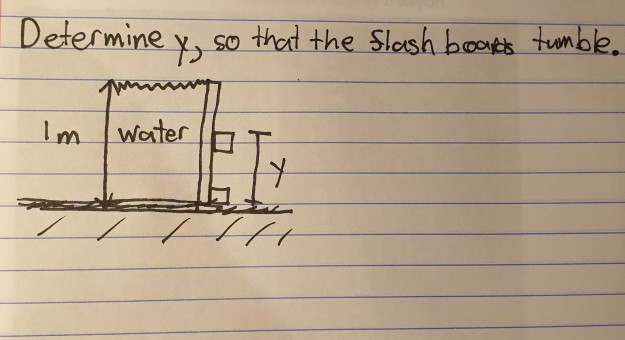 Determine y, so that the flash boards tumble.
1m
water
y